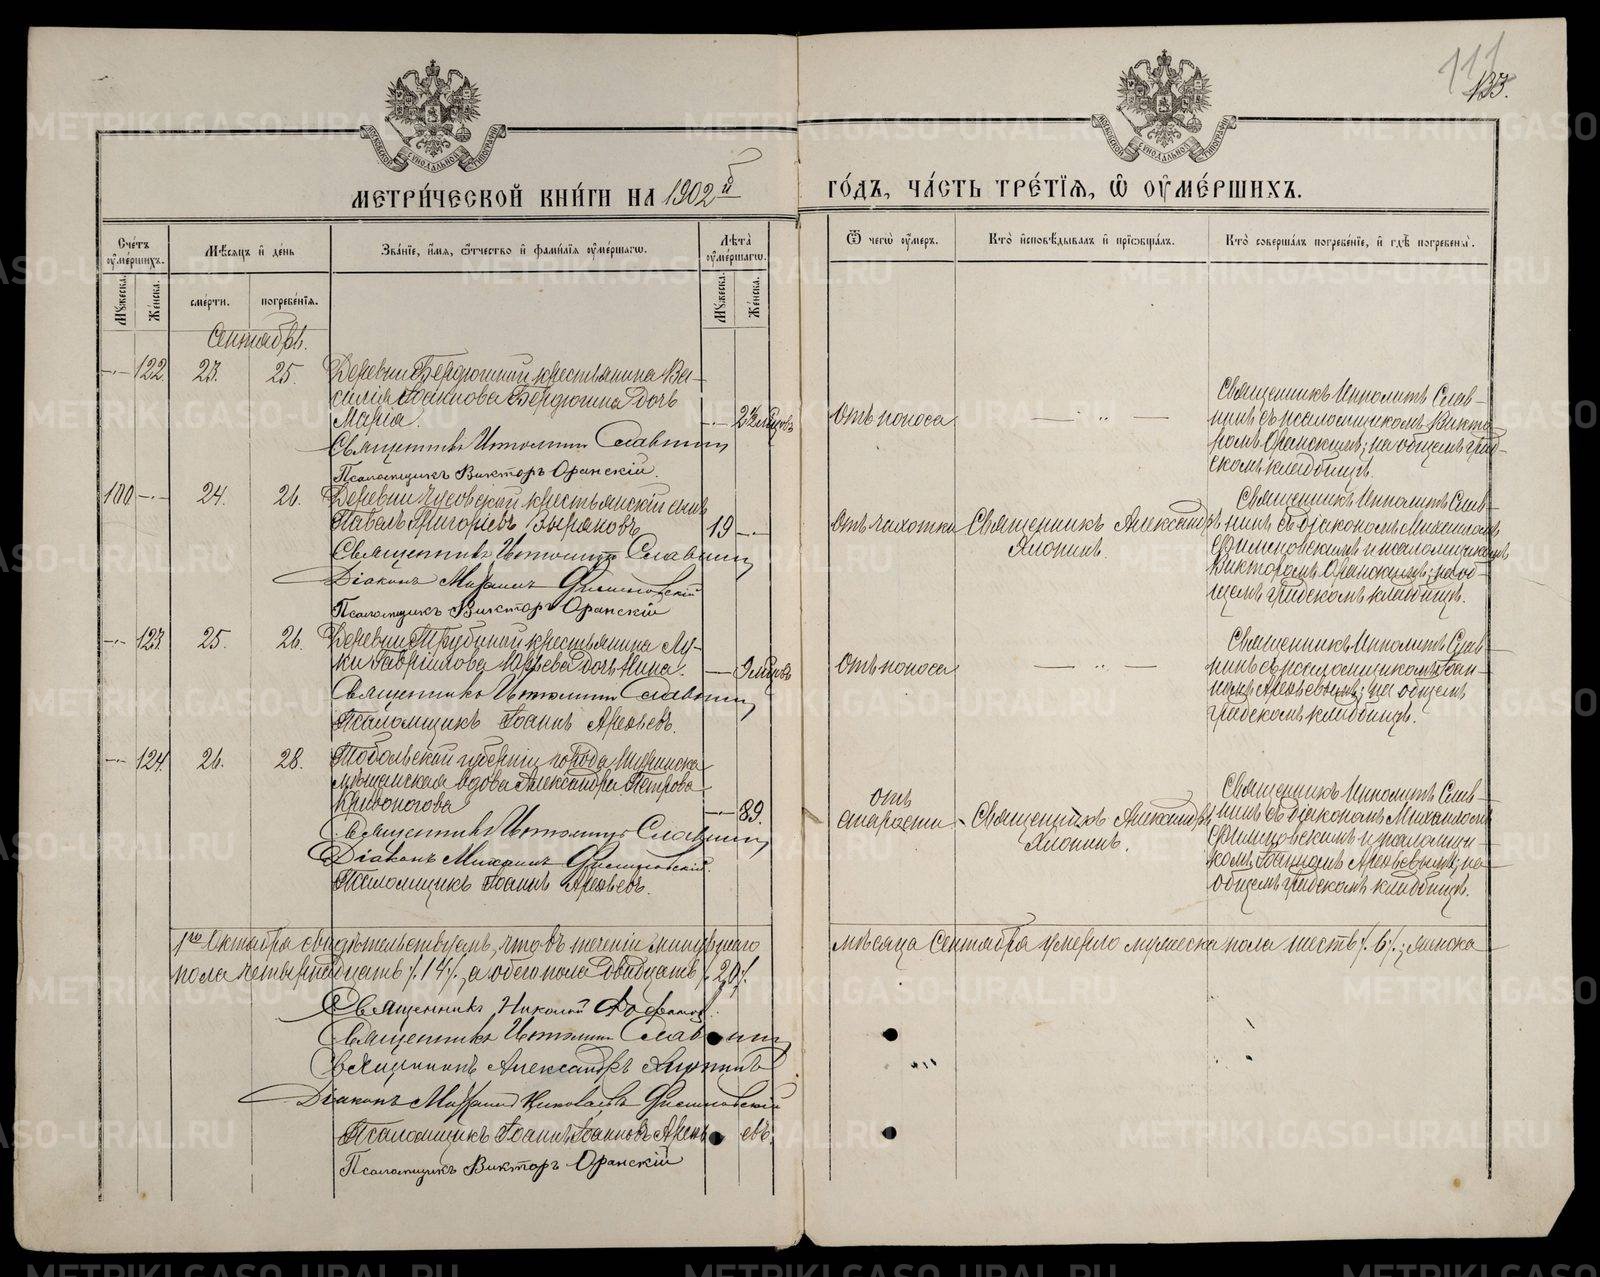 111
133.
МЕТРИ́ЧЕСКОЙ КНИ́ГИ НА 1902 й
ГО́ДЪ, ЧА́СТЬ ТРЕ́ТІЯ, Ѡ ОУМЕ́РШИХЪ.
Сче́тъ оумéршихъ.
Мꙋ́жеска.
Же́нска.
Мѣ́сяцъ и де́нь
сме́рти.
погребе́нія.
Зва́ніе, и́мя, ѻ҆́тчество и фами́лія оумéршагѡ.
Лѣ́та оумéршагѡ.
Мꙋ́жеска.
Же́нска.
Ѿ чегѡ̀ оу́меръ.
Кто̀ и҆сповѣ́дывалъ и҆ прїѡбща́лъ.
Кто̀ соверша́лъ погребе́ніе, и҆ гдѣ̀ погребены̀.
Сентябрь.
—·— 122. 23. 25. Деревни Бердюгиной крестьянина Ва-
силія Іоаннова Бердюгина дочь
Марія.
Священникъ Ипполитъ Славнинъ
Псаломщикъ Викторъ Оранскій
Отъ поноса
Священникъ Ипполитъ Слав-
нинъ съ псаломщикомъ Викто-
ромъ Оранскимъ; на общемъ град-
скомъ кладбищѣ.
100 —·— 24. 26. Деревни Чусовской крестьянскій сынъ
Павелъ Григорьевъ Зыряновъ
19 —·—
Священникъ Ипполитъ Славнинъ
Діаконъ Михаилъ
Псаломщикъ Викторъ Оранскій
Отъ чахотки
Священникъ Александръ
Хлопинъ.
Священникъ Ипполитъ Слав-
нинъ съ діакономъ Михаиломъ
и псаломщикомъ
Викторомъ Оранскимъ; на об-
щемъ градскомъ кладбищѣ.
—·— 123. 25. 26. Деревни крестьянина Лу-
ки Гавріилова дочь Нина.
— 9 мѣсяцовъ
Священникъ Ипполитъ Славнинъ
Псаломщикъ Іоаннъ Арефьевъ.
Отъ поноса
Священникъ Ипполитъ Слав-
нинъ съ псаломщикомъ Іоан-
номъ Арефьевымъ; на общемъ
градскомъ кладбищѣ.
—·— 124. 26. 28. Тобольской губерніи города
мѣщанская вдова Александра Петрова
Кривоногова
—·— 89.
Священникъ Ипполитъ Славнинъ
Діаконъ Михаилъ
Псаломщикъ Іоаннъ Арефьевъ.
Отъ
старости
Священникъ Александръ
Хлопинъ.
Священникъ Ипполитъ Слав-
нинъ съ діакономъ Михаиломъ
и псаломщи-
комъ Іоанномъ Арефьевымъ; на
общемъ градскомъ кладбищѣ.
1го Октября свидѣтельствуемъ, что въ теченіи минувшаго мѣсяца Сентября умерло мужеска пола шесть /.6/.; женска
пола четырнадцать /.14/., а обоего пола двадцать /.20/.
Священникъ Николай
Священникъ Ипполитъ Славнинъ
Священникъ Александръ Хлопинъ
Діаконъ Михаилъ Николаевъ
Псаломщикъ Іоаннъ Іоанновъ Арефьевъ.
Псаломщикъ Викторъ Оранскій